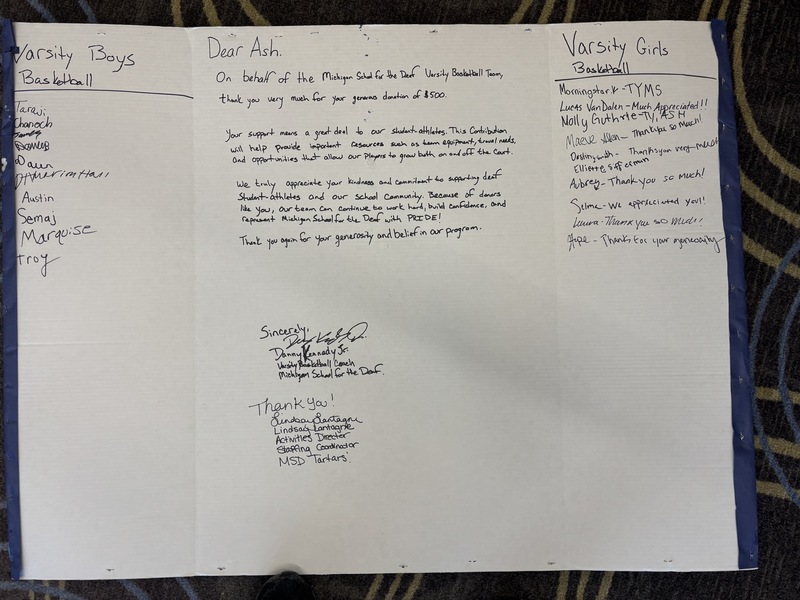 Varsity Boys
Basketball
Taraji
Chanoch
Austin
Semaj
Marquise
Troy
Dear Ash.
On behalf of the Michigan School for the Deaf Varsity Basketball Team,
thank you very much for your generous donation of $500.
Your support means a great deal to our student-athletes. This Contribution
will help provide important resources such as team equipment, travel needs,
and opportunities that allow our players to grow both on and off the Court.
We truly appreciate your kindness and commitment to supporting deaf
Student-athletes and our school Community. Because of donors
like you, our team can continue to work hard, build confidence, and
represent Michigan School for the Deaf with PRIDE!
Thank you again for your generosity and belief in our program.
Sincerely,
Danny Kennady Jr.
Varsity Basketball Coach
Michigan School for the Deaf.
Thank you!
Lindsay Lantagne
Lindsay Lantagne
Activities Director
Staffing Coordinator
MSD Tartars
Varsity Girls
Basketball
Morningstar K - TYMS
Lucas VanDalen - Much Appreciated!!
Nolly Guthrie - TY, ASH
Maeve - Thank you so much!
- Thank you very much!
Aubrey - Thank you so much!
Selma - We appreciated you!!
Laura - Thank you so much!
Hope - Thanks for your generosity